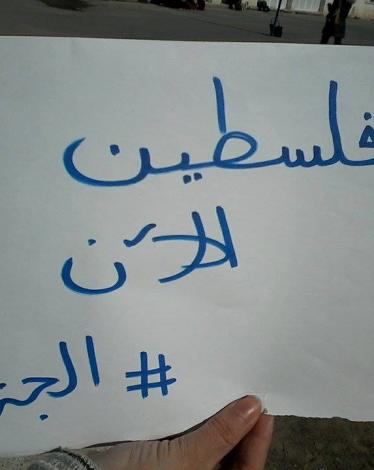 فلسطين
الآن
# الجز